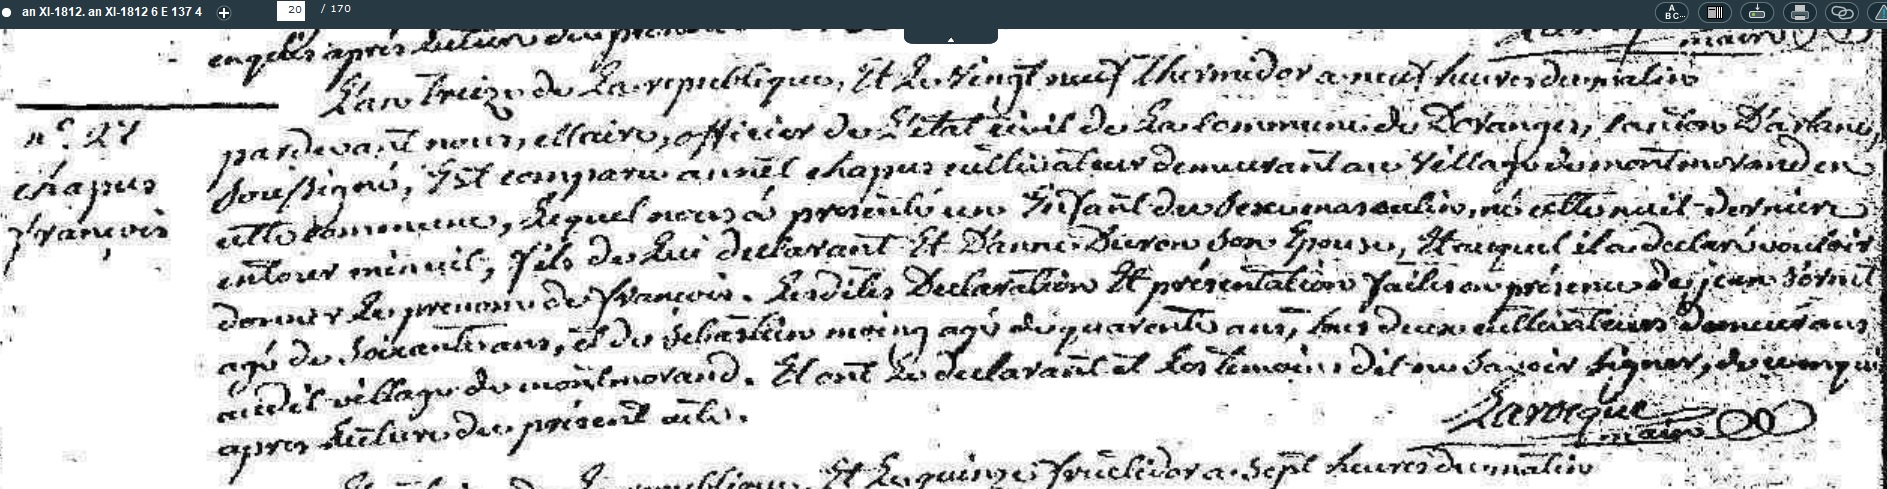 an XI-1812. an XI-1812 6 E 137 4
20 / 170
A BC...
enquis après lecture du présent
maire
L'an treize de La republique, Et Le vingt neuf thermidor a neuf heures du matin
n.° 27
pardevant nous, Maire, officier de L'état civil de La Commune de Doranges, canton D'arlanc,
chapus
soussigné, Est comparu annet chapus cultivateur demeurant au village de montmorand en
françois
cette commune, Lequel nous a presenté un Enfant du sexe masculin, né cette nuit derniere
entour minuit, fils de Lui declarant Et D'anne Duron son Epouse, Et auquel il a declaré vouloir
donner Le prenom de françois. Lesdites Declaration Et présentation faites en présence de jean
agé de soixante ans, et de sebastien moing agé de quarente ans, tous deux cultivateurs demeurans
audit village de montmorand. Et ont Le declarant et Les temoins dit ne savoir signer, de ce enquis
apres Lecture du présent acte.
Larocque
maire
de La republique, Et Le quinze fructidor a sept heures du matin